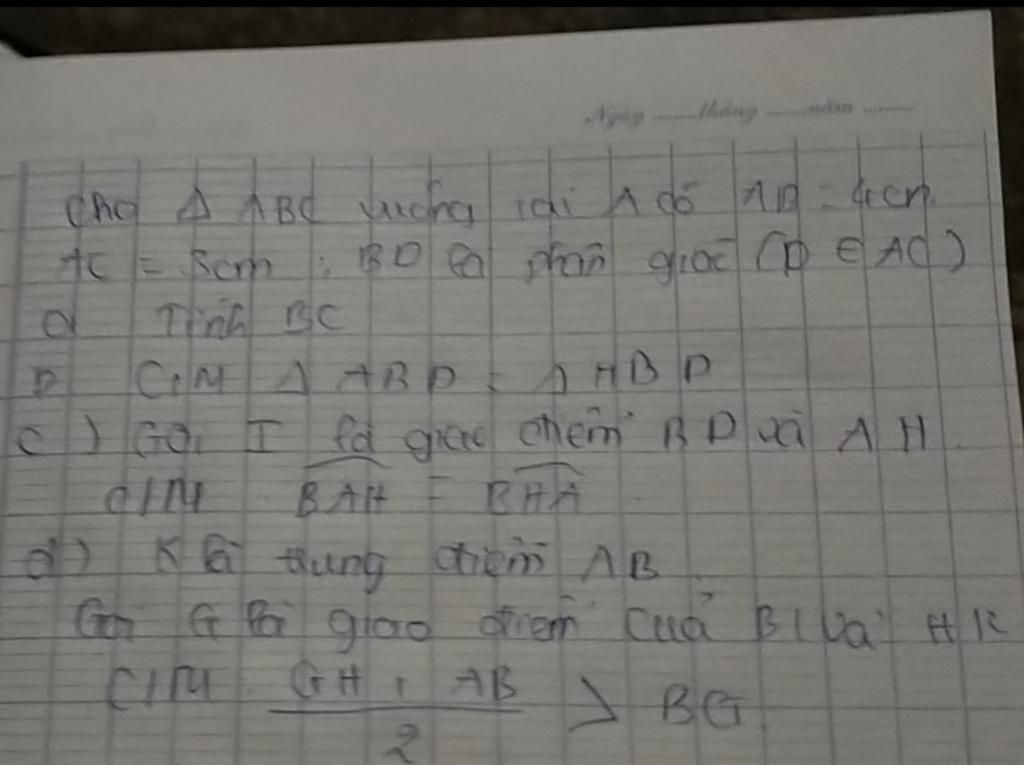 Ngày ........ tháng ........ năm ........
Cho Δ ABC vuông tại A có AB = 4cm
AC = 3cm ; BD là phân giác (D ∈ AC)
a Tính BC
b C/M Δ ABD = Δ HBD
c ) Gọi I là giao điểm BD và AH
C/M BAH = BHA
d) K là trung điểm AB
Gọi G là giao điểm của BI và HK
C/M GH + AB / 2 > BG